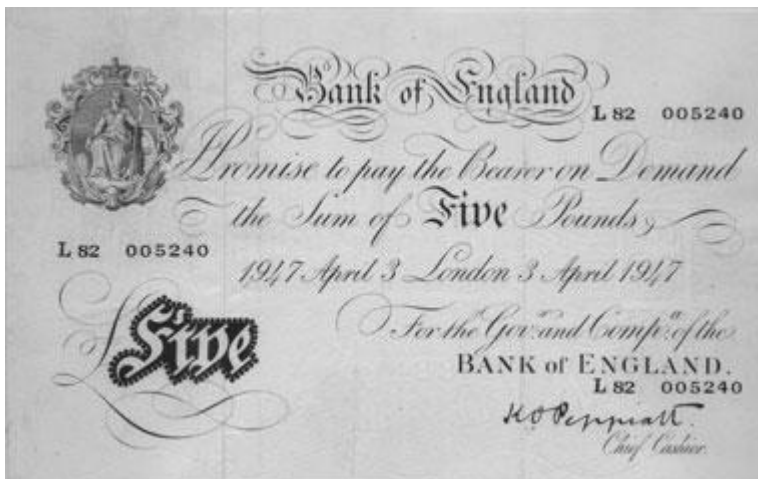 Bank of England
L 82 005240
I Promise to pay the Bearer on Demand
the Sum of Five Pounds
L 82 005240
1947 April 3 London 3 April 1947
For the Gov.r and Comp.a of the
BANK of ENGLAND.
L 82 005240
Five
K O Peppiatt.
Chief Cashier.